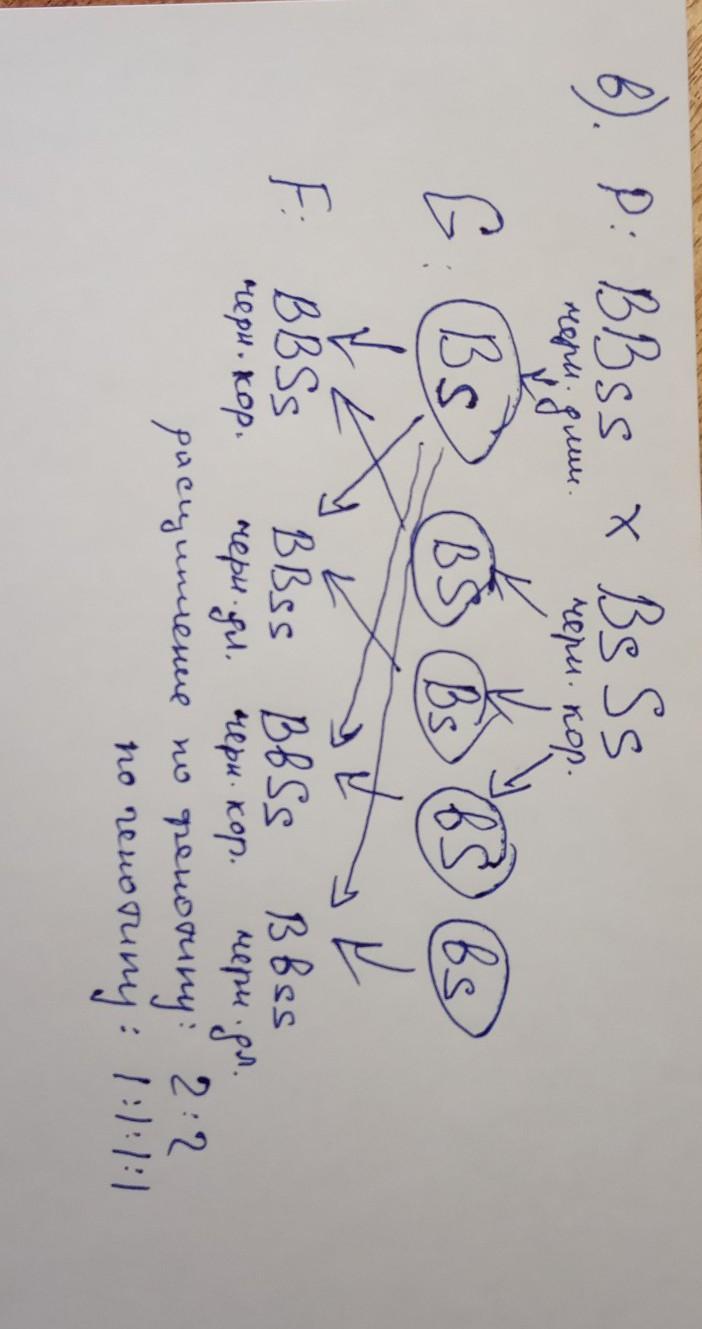 в). P: BBss x BsSs
черн. длин. черн. кор.
G: Bs BS Bs bS bs
F: BBSs BBss BbSs Bbss
черн. кор. черн. дл. черн. кор. черн. дл.
расщипление по фенотипу: 2:2
по генотипу: 1:1:1:1